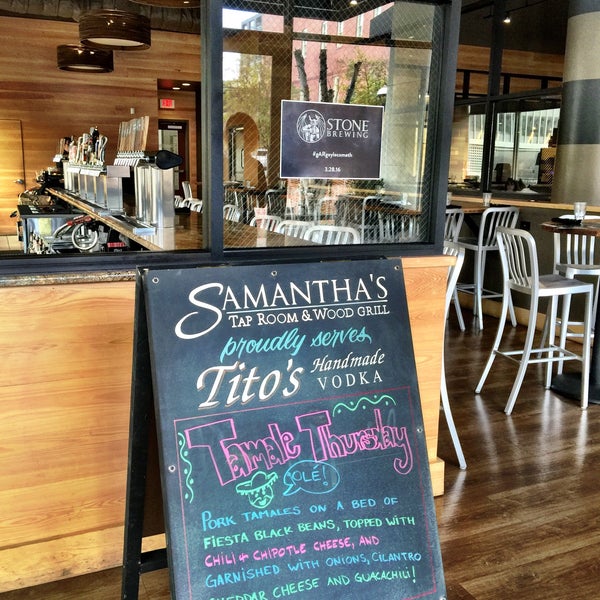 EXIT
STONE
BREWING
#gARgoylesamath
3.28.16
SAMANTHA'S
TAP ROOM & WOOD GRILL
proudly serves
Tito's Handmade
VODKA
Tamale Thursday
OLÉ!
PORK TAMALES ON A BED OF
FIESTA BLACK BEANS, TOPPED WITH
CHILI & CHIPOTLE CHEESE, AND
GARNISHED WITH ONIONS, CILANTRO
CHEDDAR CHEESE AND GUACACHILI!